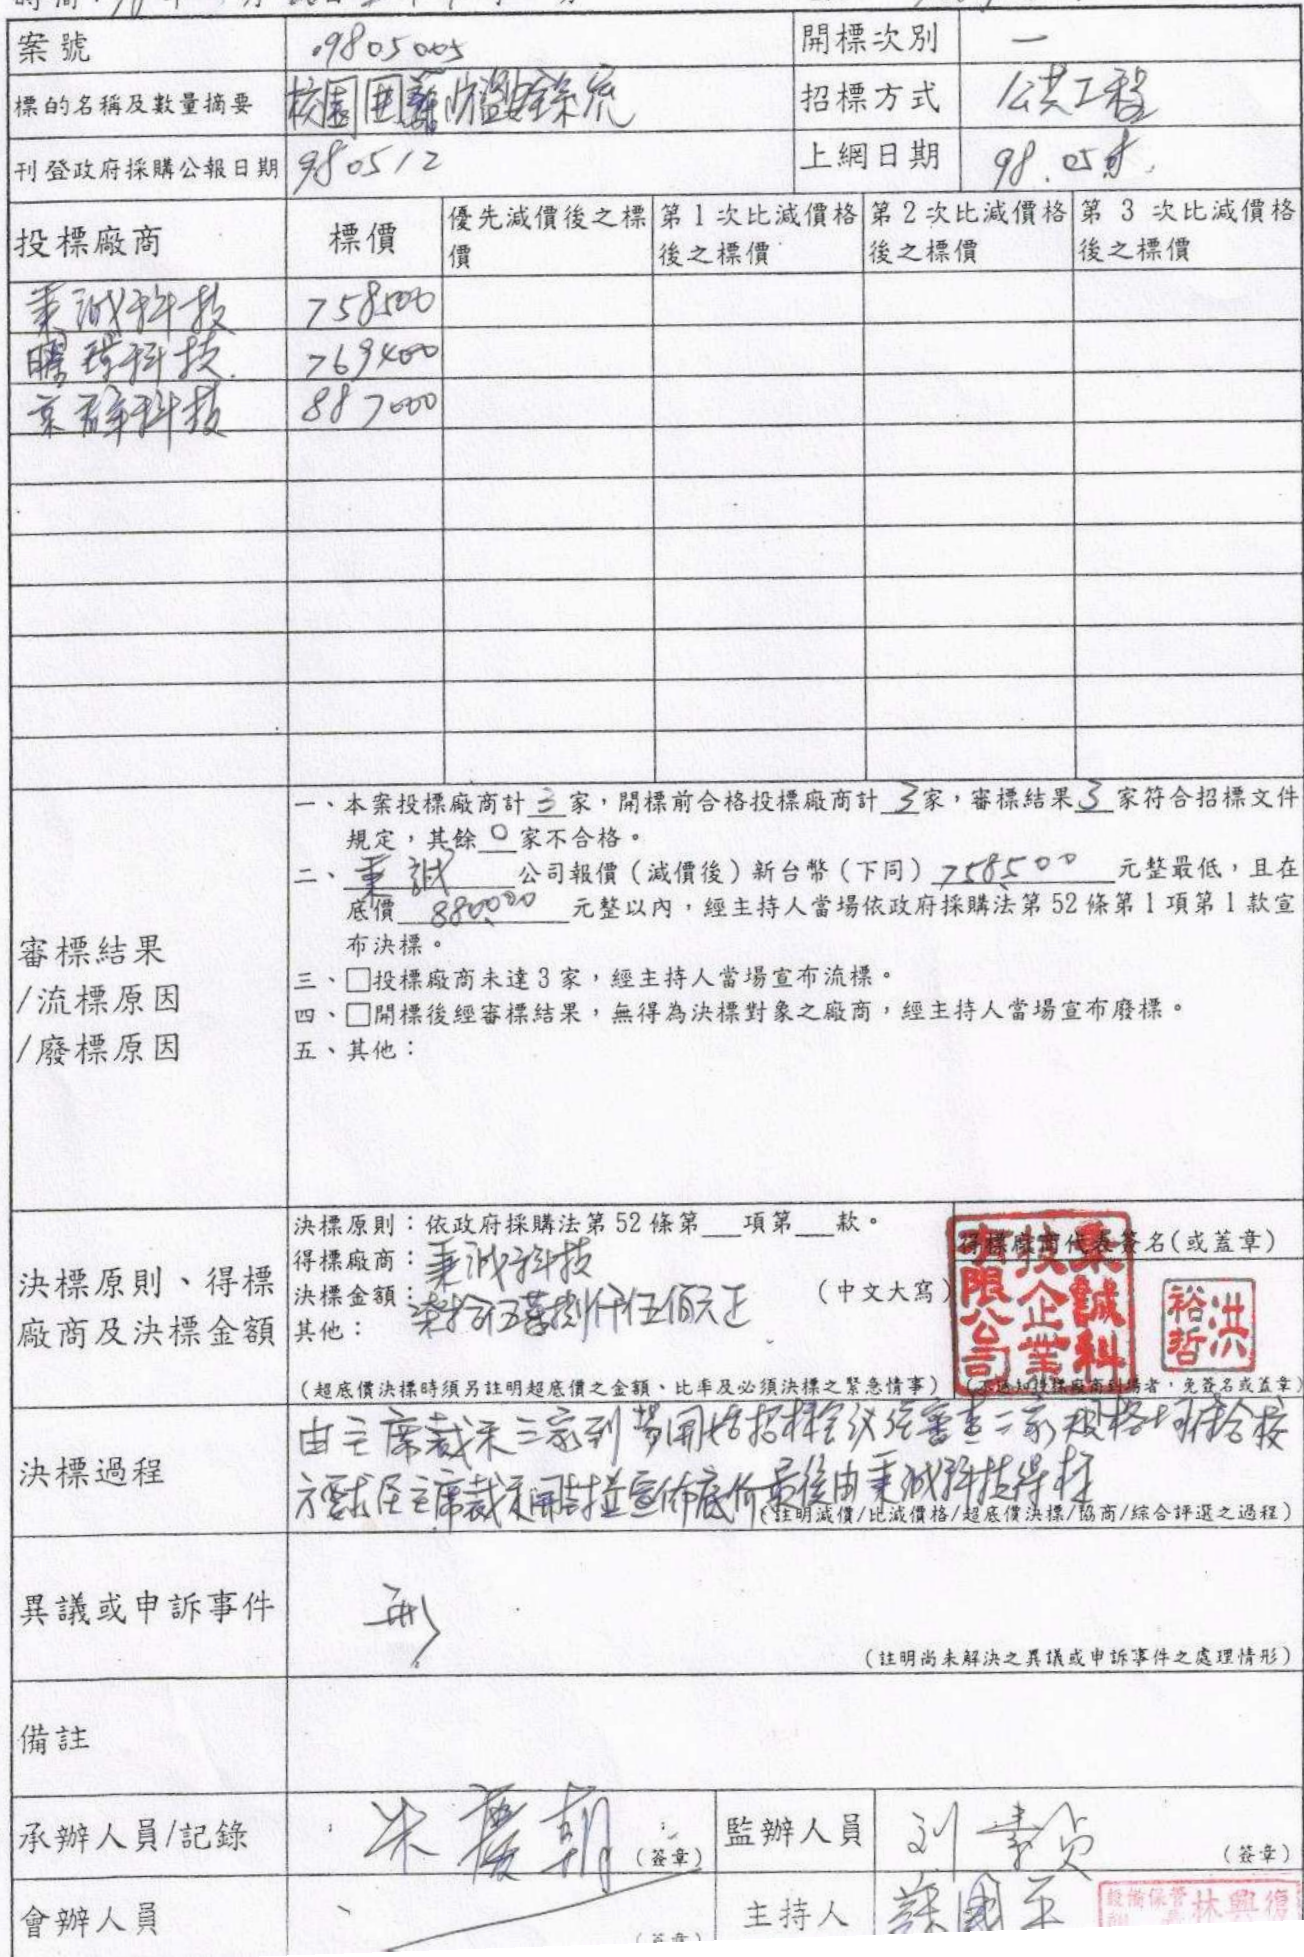 案號 9805005 開標次別 一
標的名稱及數量摘要 校園圍籬防盜安全系統 招標方式 公共工程
刊登政府採購公報日期 980512 上網日期 98.05
投標廠商 標價 優先減價後之標價 第1次比減價格後之標價 第2次比減價格後之標價 第3次比減價格後之標價
秉誠科技 758500
科技 769400
科技 887000
審標結果
/流標原因
/廢標原因
一、本案投標廠商計三家,開標前合格投標廠商計3家,審標結果3家符合招標文件
規定,其餘0家不合格。
二、秉誠公司報價(減價後)新台幣(下同)758500元整最低,且在
底價880000元整以內,經主持人當場依政府採購法第52條第1項第1款宣
布決標。
三、□投標廠商未達3家,經主持人當場宣布流標。
四、□開標後經審標結果,無得為決標對象之廠商,經主持人當場宣布廢標。
五、其他:
決標原則、得標
廠商及決標金額
決標原則:依政府採購法第52條第__項第__款。
得標廠商:秉誠科技
決標金額:柒拾伍萬捌仟伍佰元正(中文大寫)
其他:
(超底價決標時須另註明超底價之金額、比率及必須決標之緊急情事)
得標廠商代表簽名(或蓋章)
秉誠科
技企業
有限公司
洪
裕哲
(不通知投標廠商到場者,免簽名或蓋章)
決標過程
由主席裁示三家到場開始招標會議經審查三家規格均符合校
方需求後主席裁示開封並宣佈底价最後由秉誠科技得标
(註明減價/比減價格/超底價決標/協商/綜合評選之過程)
異議或申訴事件 無
(註明尚未解決之異議或申訴事件之處理情形)
備註
承辦人員/記錄 朱慶朝 (簽章) 監辦人員 刘素贞 (簽章)
會辦人員 主持人
設備保管 林興復